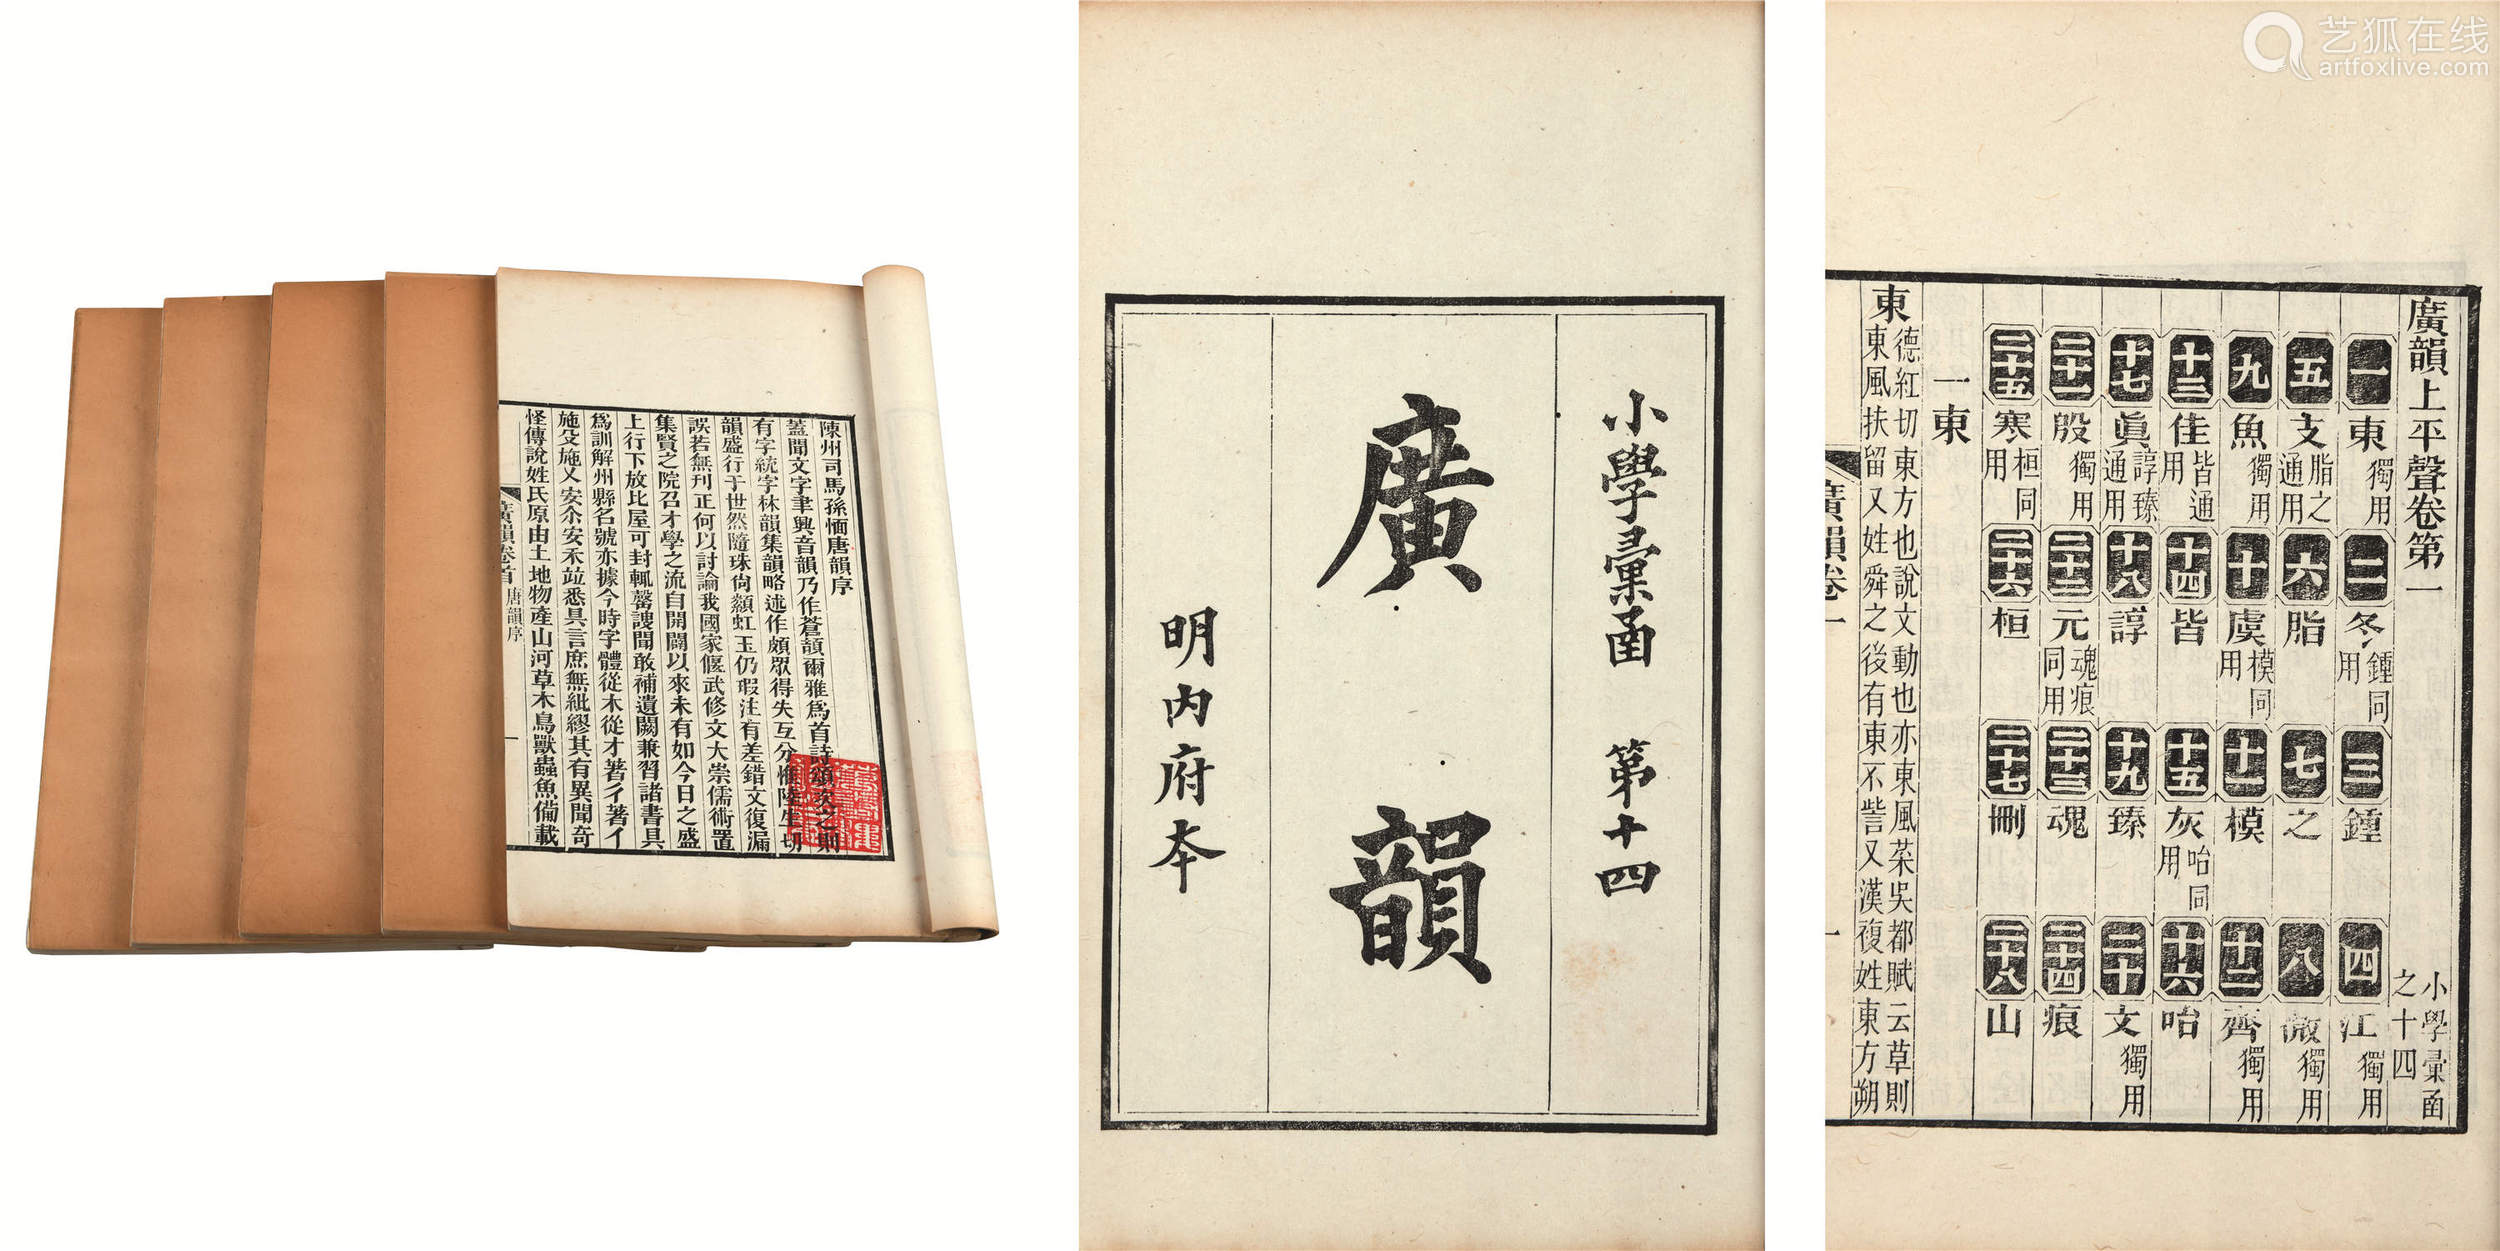 艺狐在线
artfoxlive.com
陳州司馬孫愐唐韻序
蓋聞文字聿興音韻乃作蒼頡爾雅爲首詩頌次之則
有字統字林韻集韻略述作頗眾得失互分惟陸生切
韻盛行于世然隨珠尙纇虹玉仍瑕注有差錯文復漏
誤若無刊正何以討論我國家偃武修文大崇儒術置
集賢之院召才學之流自開闢以來未有如今日之盛
上行下放比屋可封輒罄謏聞敢補遺闕兼習諸書具
爲訓解州縣名號亦據今時字體從木從才著彳著亻
施殳施又安尒安禾竝悉具言庶無紕繆其有異聞奇
怪傳說姓氏原由土地物產山河草木鳥獸蟲魚備載
廣韻卷首 唐韻序 一
小學彙函 第十四
廣韻
明內府本
廣韻上平聲卷第一 小學彙函之十四
一東獨用 二冬鍾同用 三鍾 四江獨用
五支脂之通用 六脂 七之 八微獨用
九魚獨用 十虞模同用 十一模 十二齊獨用
十三佳皆通用 十四皆 十五灰咍同用 十六咍
十七眞諄臻通用 十八諄 十九臻 二十文獨用
二十一殷獨用 二十二元魂痕同用 二十三魂 二十四痕
二十五寒桓同用 二十六桓 二十七刪 二十八山
一東
東 德紅切東方也說文動也亦東風菜吳都賦云草則
東風扶留又姓舜之後有東不訾又漢複姓東方朔
廣韻卷一 一